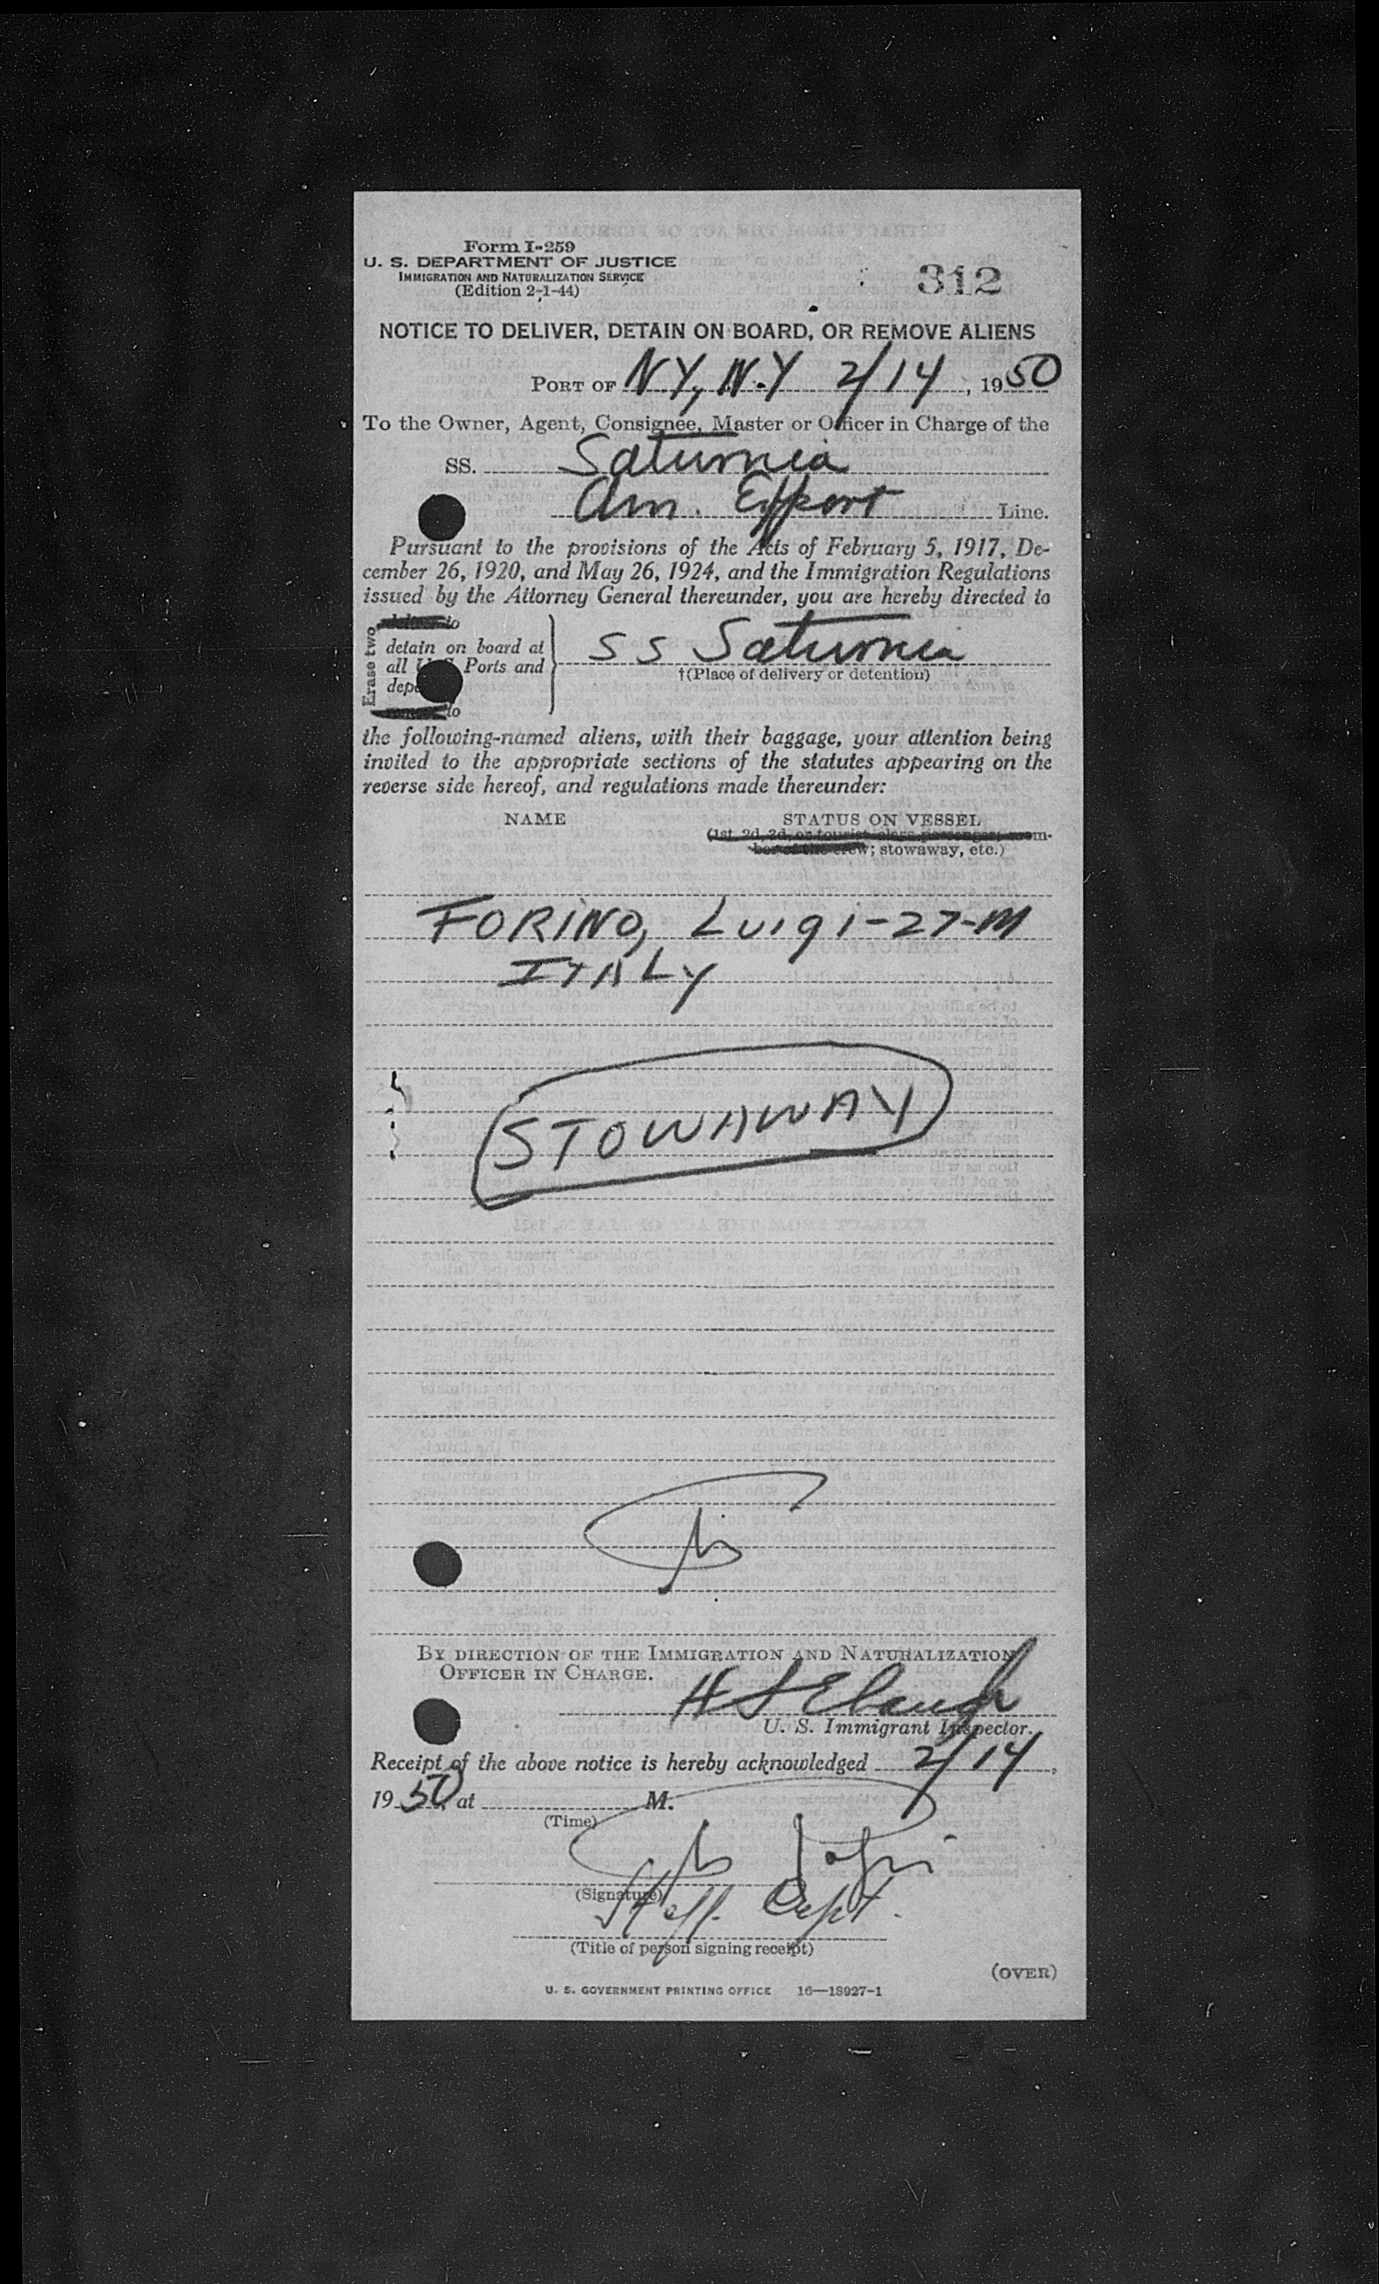 Form I-259
U. S. DEPARTMENT OF JUSTICE
IMMIGRATION AND NATURALIZATION SERVICE
(Edition 2-1-44)
312
NOTICE TO DELIVER, DETAIN ON BOARD, OR REMOVE ALIENS
PORT OF NY, N.Y 2/14, 1950
To the Owner, Agent, Consignee, Master or Officer in Charge of the
SS. Saturnia
Am. Export Line.
Pursuant to the provisions of the Acts of February 5, 1917, De-
cember 26, 1920, and May 26, 1924, and the Immigration Regulations
issued by the Attorney General thereunder, you are hereby directed to
Erase two
to
detain on board at
all Ports and
SS Saturnia
†(Place of delivery or detention)
to
the following-named aliens, with their baggage, your attention being
invited to the appropriate sections of the statutes appearing on the
reverse side hereof, and regulations made thereunder:
NAME STATUS ON VESSEL
(1st, 2d, 3d, or tourist class passenger; mem-
ber of the crew; stowaway, etc.)
FORINO, Luigi-27-M
ITALY
STOWAWAY
BY DIRECTION OF THE IMMIGRATION AND NATURALIZATION
OFFICER IN CHARGE.
U. S. Immigrant Inspector.
Receipt of the above notice is hereby acknowledged 2/14,
1950, at M.
(Time)
(Signature)
Staff Capt.
(Title of person signing receipt)
(OVER)
U. S. GOVERNMENT PRINTING OFFICE 16—18927-1